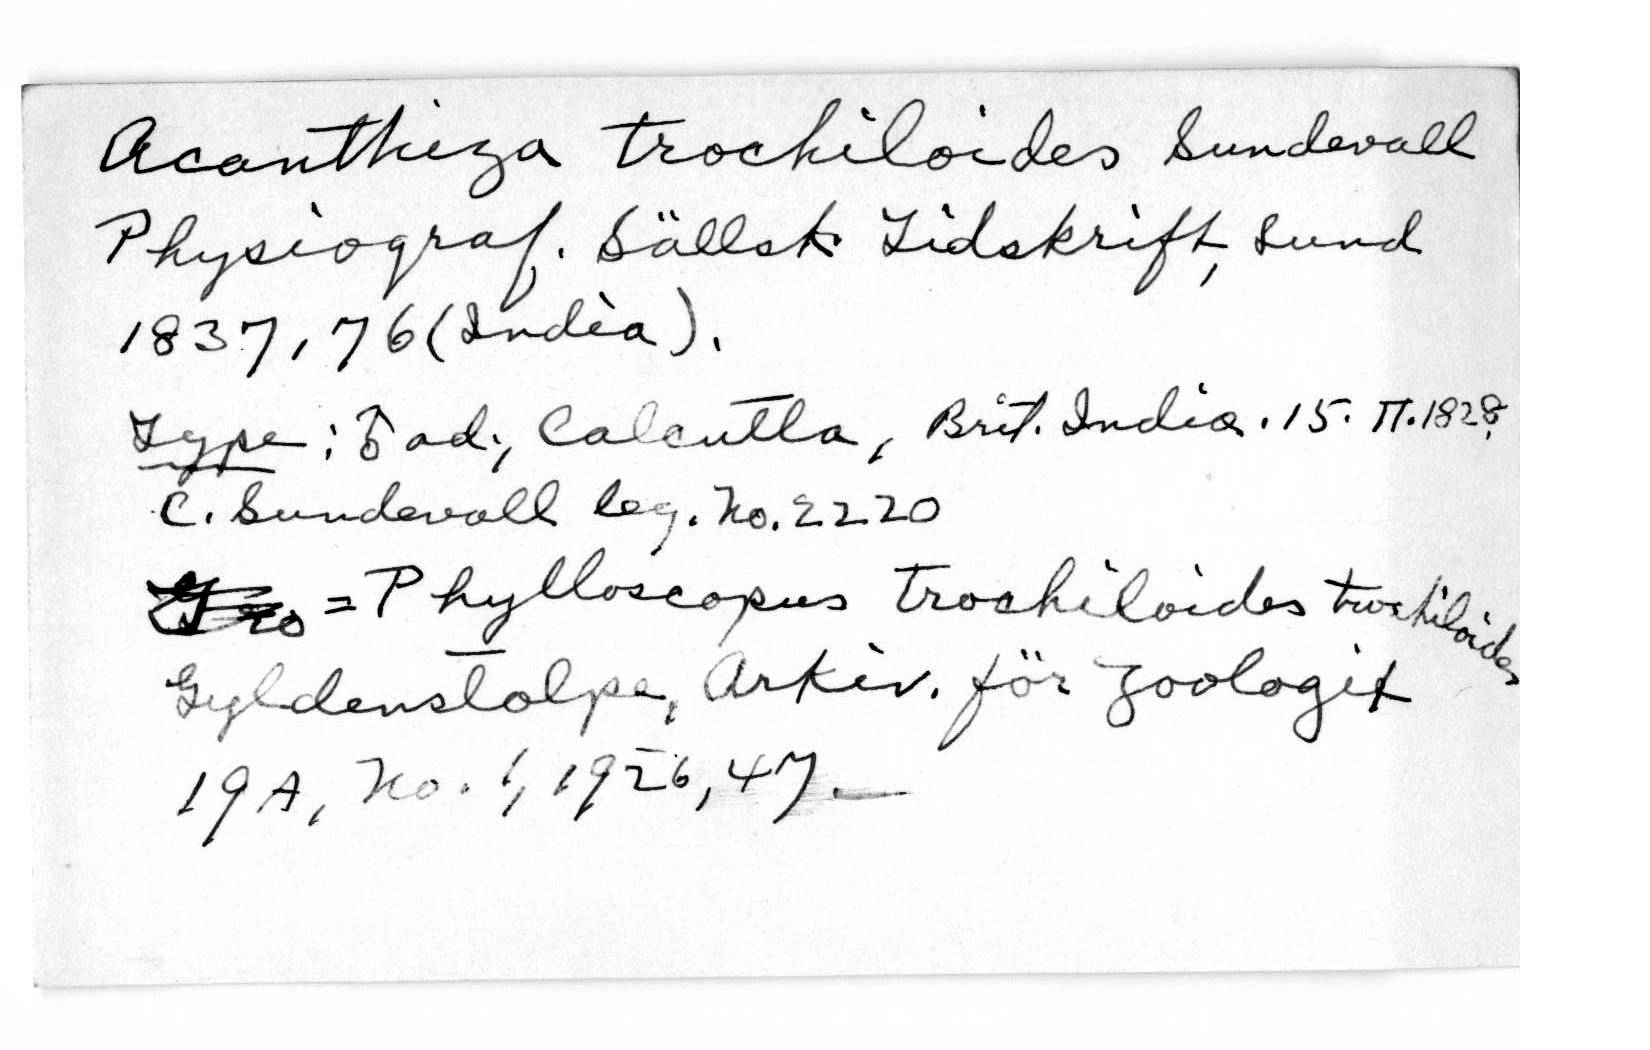 Acanthiza trochiloides Sundevall
Physiograf. Sällsk. Tidskrift, Lund
1837, 76 (India).
Type: ♂ ad., Calcutta, Brit. India. 15. II. 1828,
C. Sundevall leg. No. 2220
= Phylloscopus trochiloides trochiloides
Gyldenstolpe, Arkiv. för Zoologit
19A, No. 1, 1926, 47.